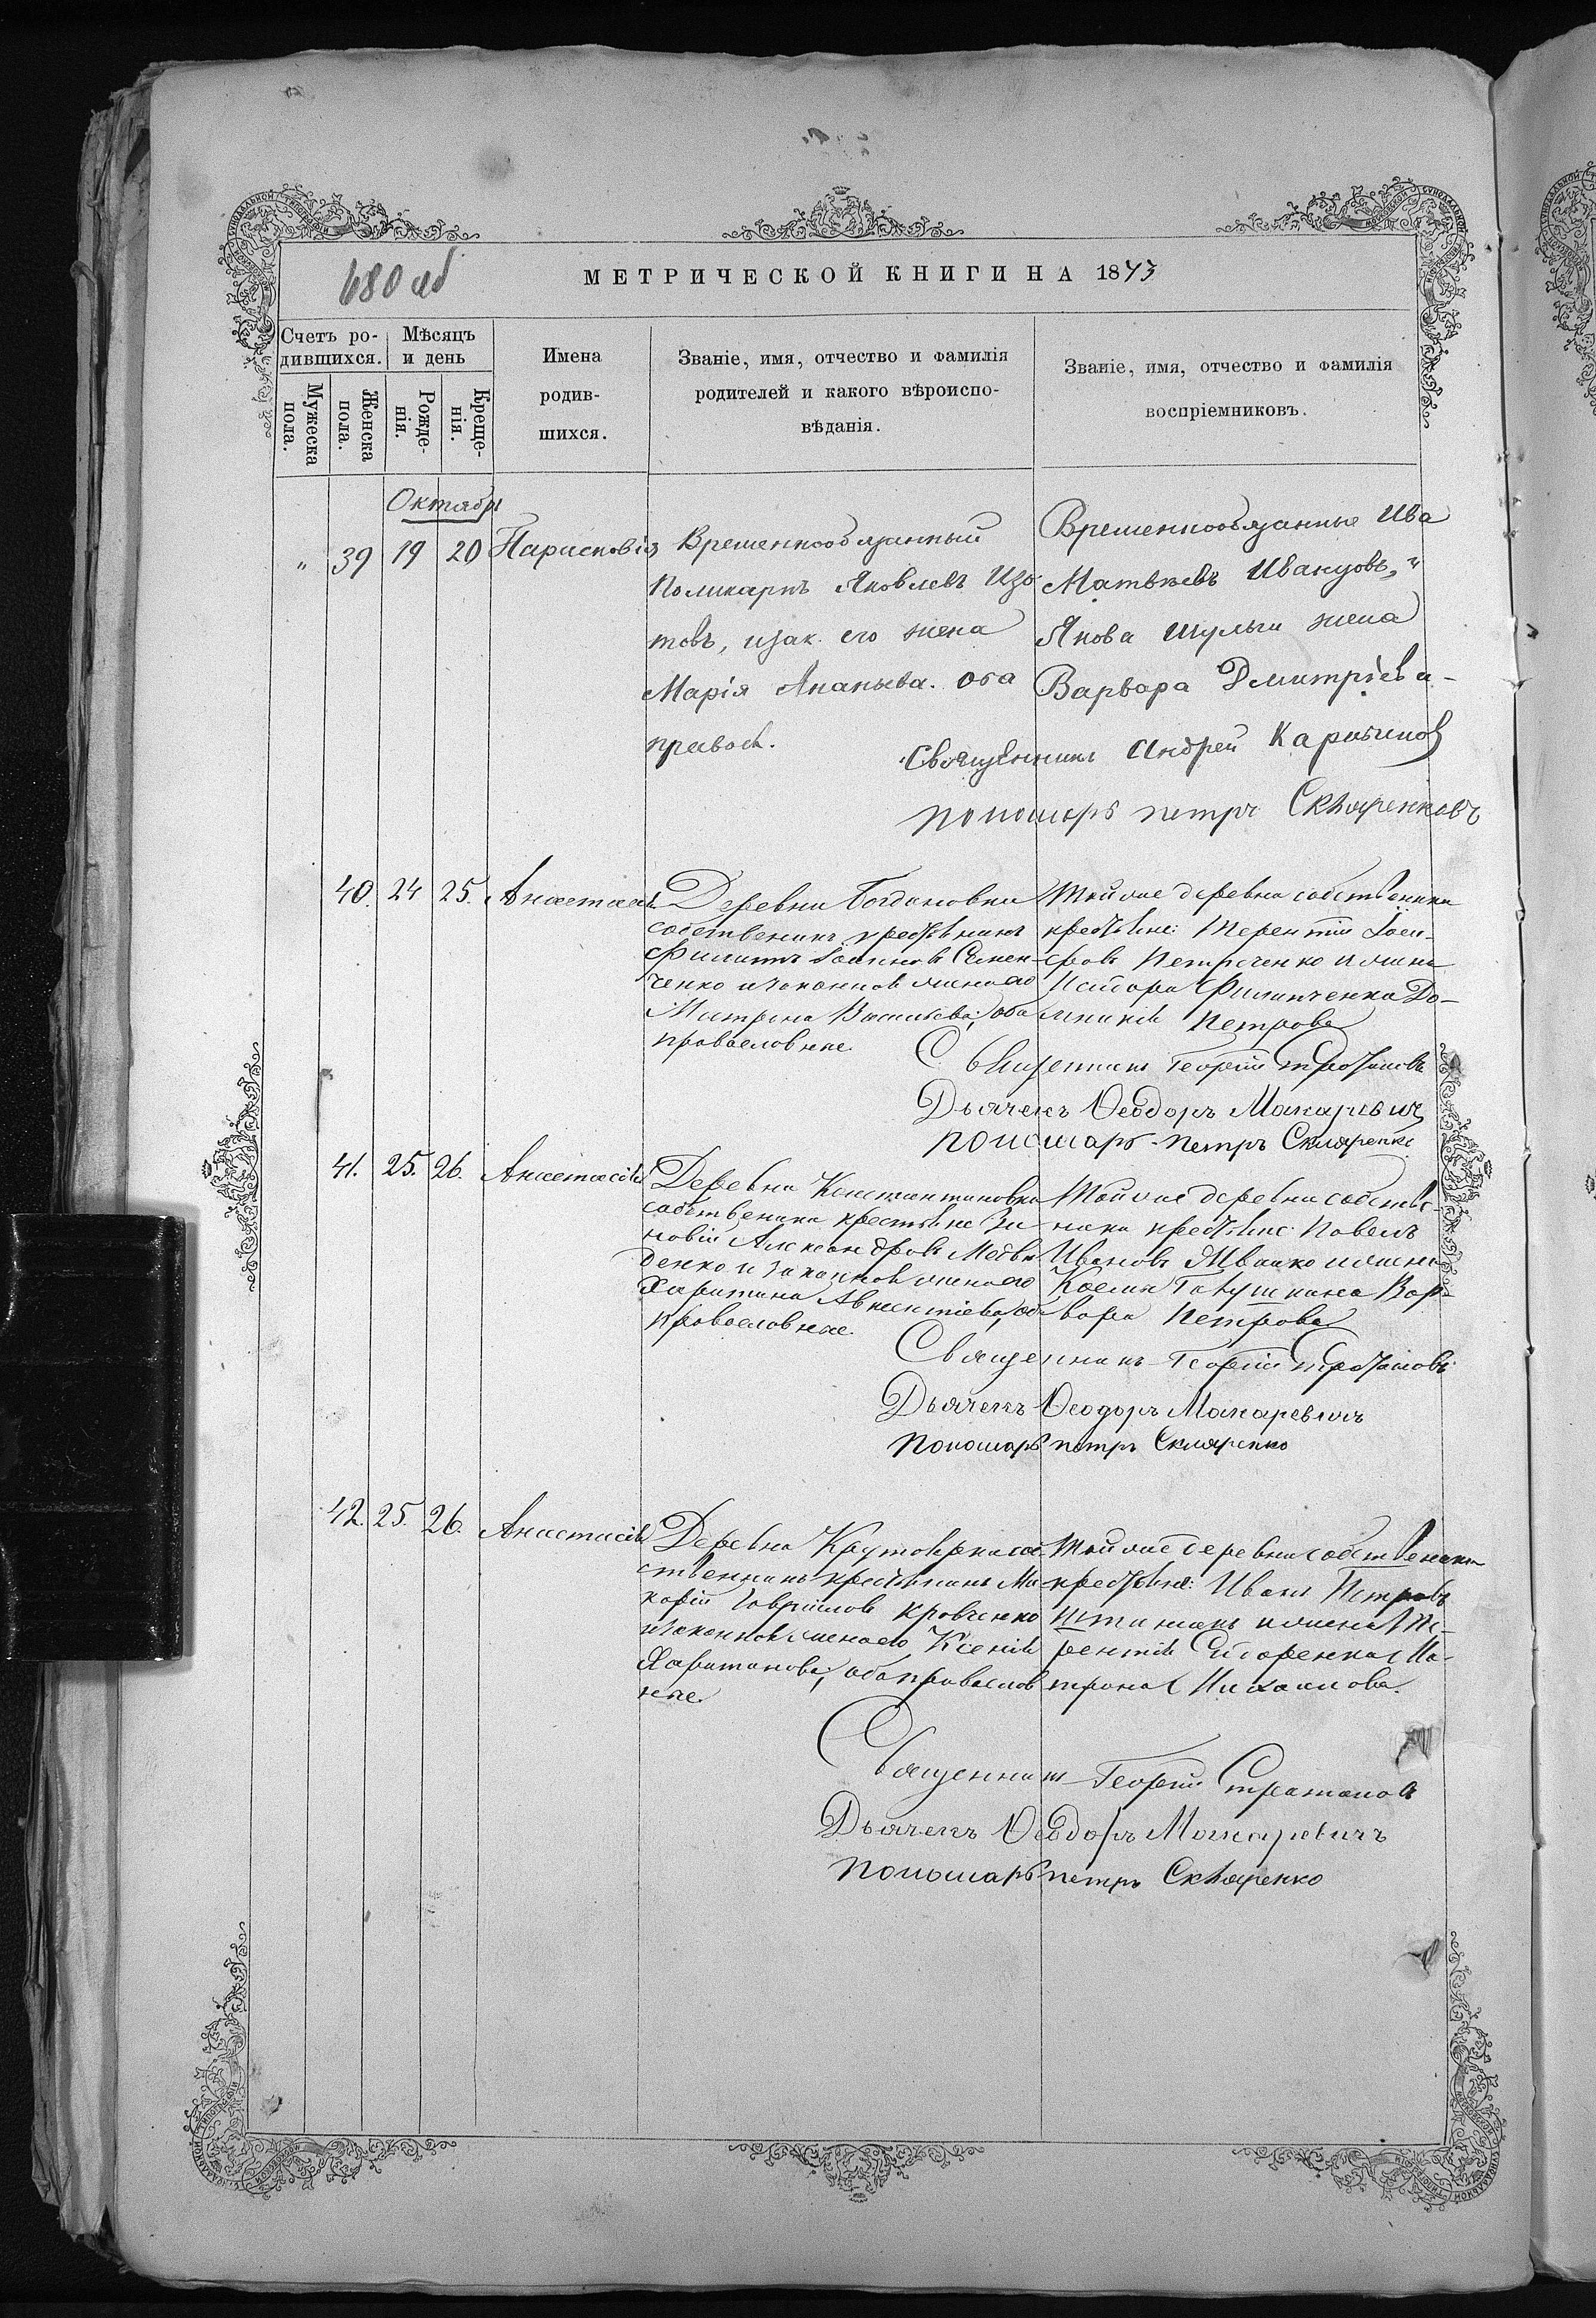 680 об
МЕТРИЧЕСКОЙ КНИГИ НА 1873
Счетъ ро-
дившихся.
Мѣсяцъ
и день
Мужеска
пола.
Женска
пола.
Рожде-
нія.
Креще-
нія.
Имена
родив-
шихся.
Званіе, имя, отчество и фамилія
родителей и какого вѣроиспо-
вѣданія.
Званіе, имя, отчество и фамилія
воспріемниковъ.
Октября
" 39 19 20 Парасковія
Временнообязанный
Поликарпъ Яковлевъ Изо-
товъ, изак. его жена
Марія Ананьева. Оба
правосл.
Временнообязанные Ива
Матвѣевъ Ивануовъ, "
Якова Шульги жена
Варвара Дмитріева-
Священникъ Андрей
пономарь петръ Скляренковъ
40. 24 25. Анастасія
Деревни Богдановки
собственикъ крестьянинъ
Филиппъ Іоанновъ Семен-
ченко и законная жена его
Матрона Васильева; оба
православные.
Той же деревни собственики
крестьяне: Терентій
Петреченко и жена
Исидора Филипченка До-
мникія Петрова
Священникъ Георгій Стратановъ
Дьячекъ Ѳеодоръ Макаревичъ
пономарь петръ Скляренко
41. 25. 26. Анастасія
Деревни Константиновки
собственика крестьяне Зи-
новій Александровъ Медвѣ-
денко и законная жена его
Харитина Авксентіева, оба
православные.
Той же деревни собстве-
ники крестьяне: Павелъ
Ивановъ Ивашко и жена
Космы Вар
вара Петрова
Священникъ Георгій Стратановъ
Дьячекъ Ѳеодоръ Макаревичъ
пономарь петръ Скляренко
42. 25. 26. Анастасія
Деревни Крутоярки соб-
ственникъ крестьянинъ Ма-
карій Гавріиловъ Кравченко
и законная жена его Ксенія
Харитонова; оба православ
ные.
Той же деревни собственики
крестьяне: Иванъ Петровъ
и жена Те-
рентія Сидоренка Ма-
трона Михаилова.
Священникъ Георгій Стратановъ
Дьячекъ Ѳеодоръ Макаревичъ
пономарь петръ Скляренко